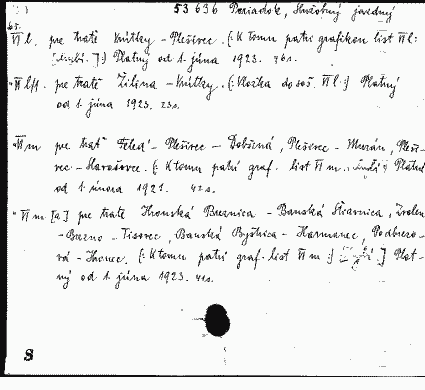 53 636 Poriadok, Služobný jazdný
VI l. pre trate Vrútky – Plešivec. (: K tomu patrí grafikon list VI l:
:] Platný od 1. júna 1923. 46 s.
VI l/1. pre trate Žilina – Vrútky. (: Vložka do soš. VI l:) Platný
od 1. júna 1923. 23 s.
VI m pre trať Feled' – Plešivec – Dobšiná, Plešivec – Muráň, Pleši-
vec – Slavošovce. (: K tomu patrí graf. list VI m. :) Platný
od 1. února 1921. 42 s.
VI m [a] pre trate Hronská Breznica – Banská Štiavnica, Zvolen
– Brezno – Tisovec, Banská Bystrica – Harmanec, Podbrezo-
vá – Hronec. (: K tomu patrí graf. list VI m :) Plat-
ný od 1. júna 1923. 41 s.
8